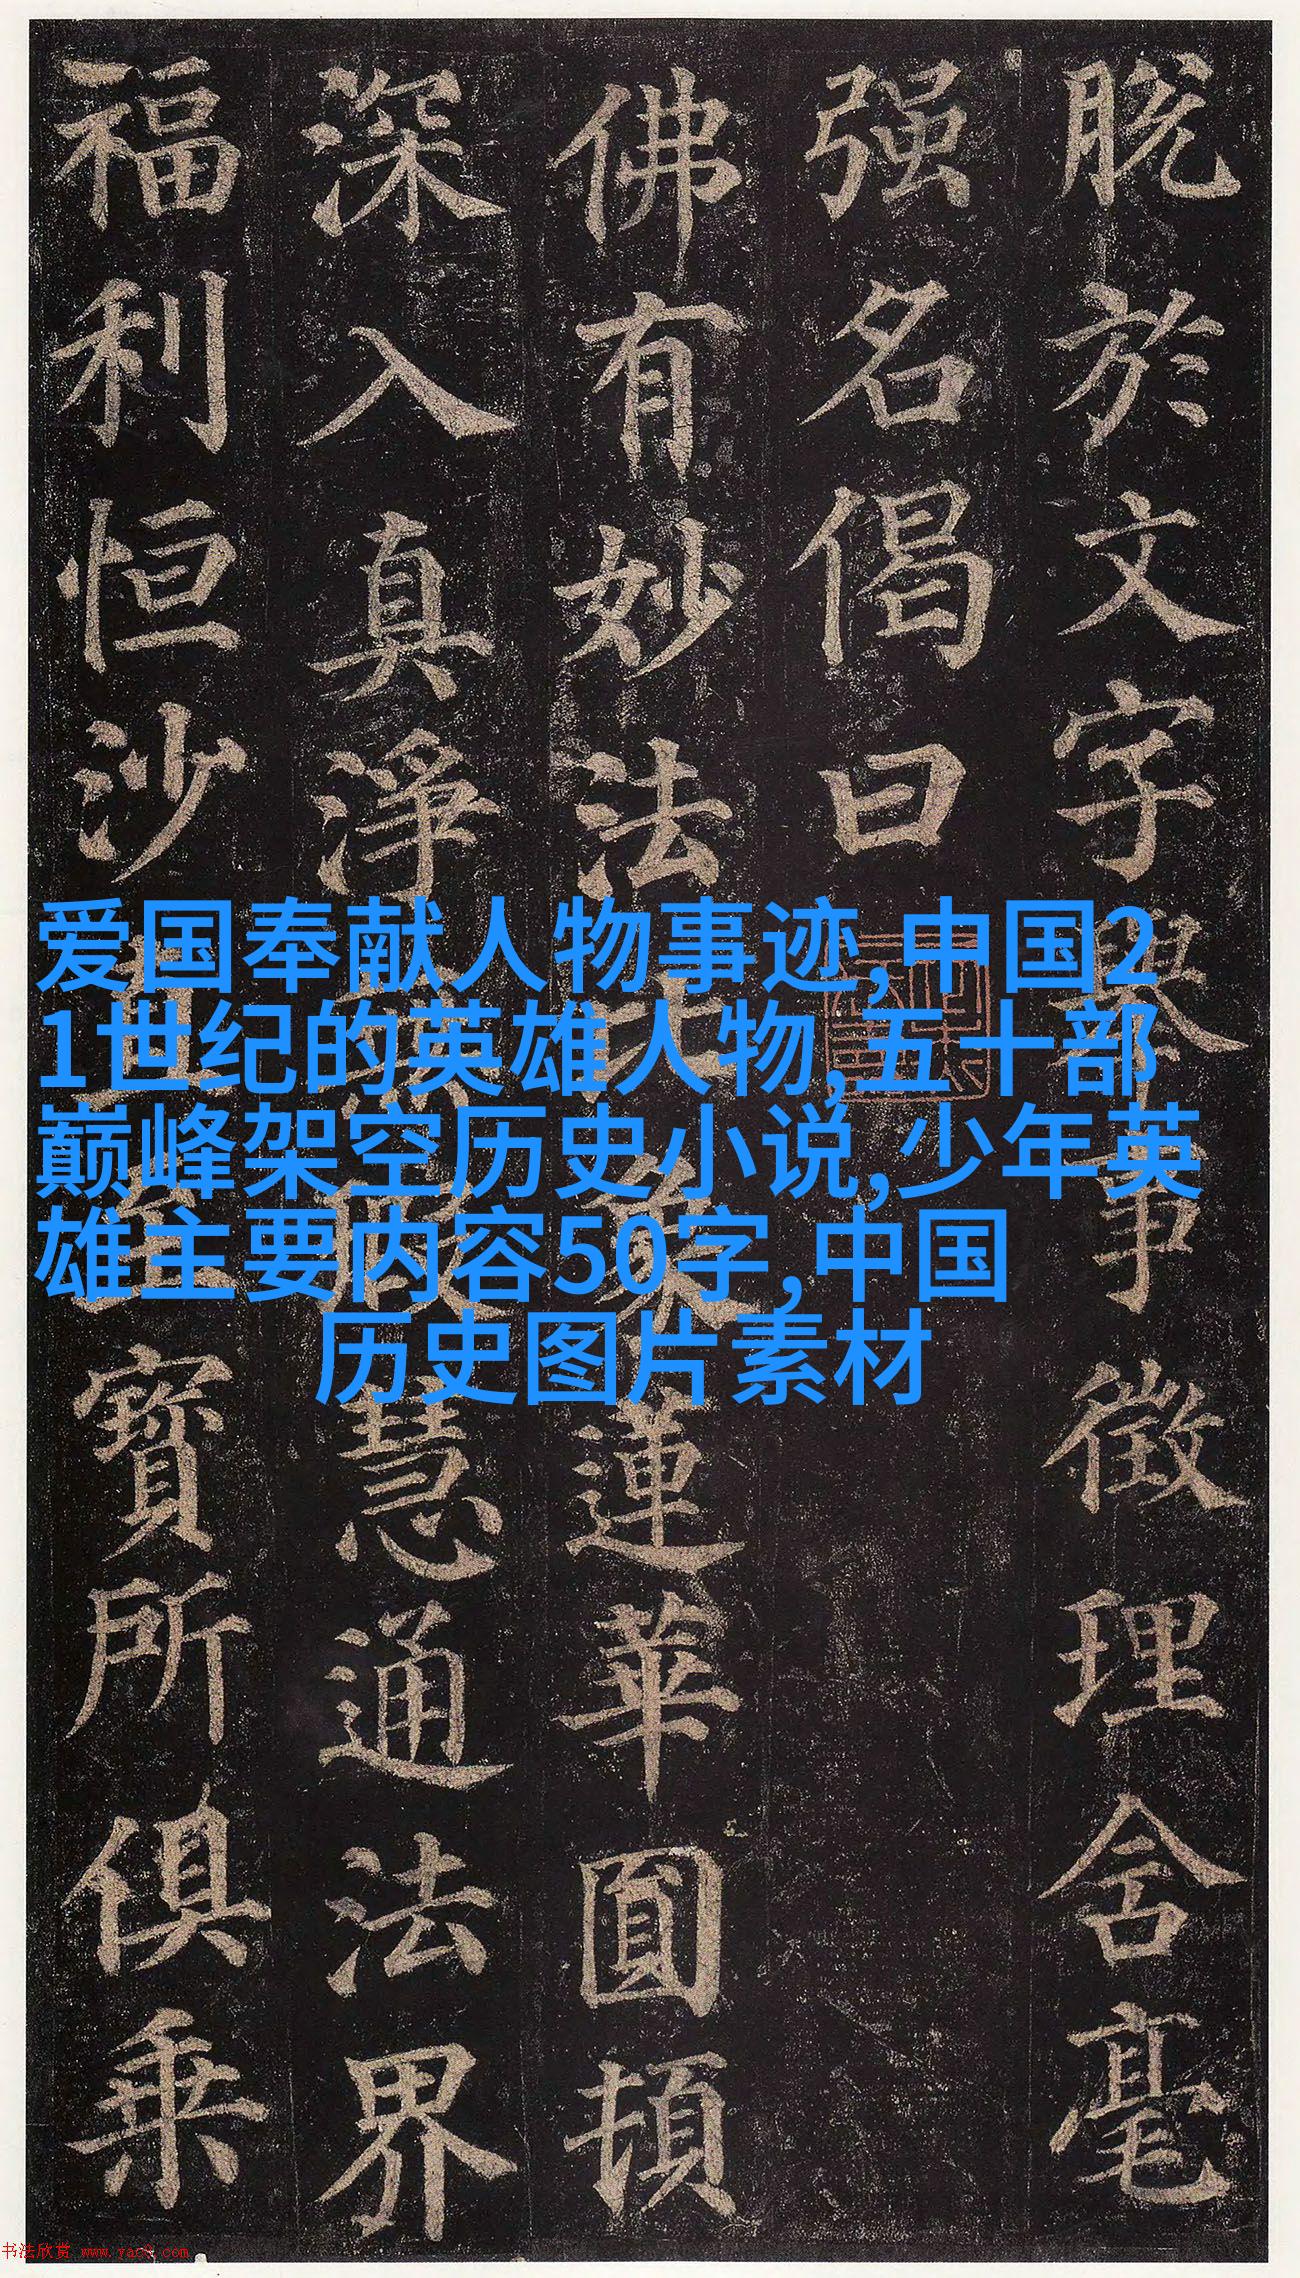 脱於文字舉事徵理含毫
强名偈曰
佛有妙法比象蓮華圓頓
深入真淨無瑕慧通法界
福利恒沙直至寶所俱乘
爱国奉献人物事迹,中国2
1世纪的英雄人物,五十部
巅峰架空历史小说,少年英
雄主要内容50字,中国
历史图片素材
书法欣赏 www.yac8.com